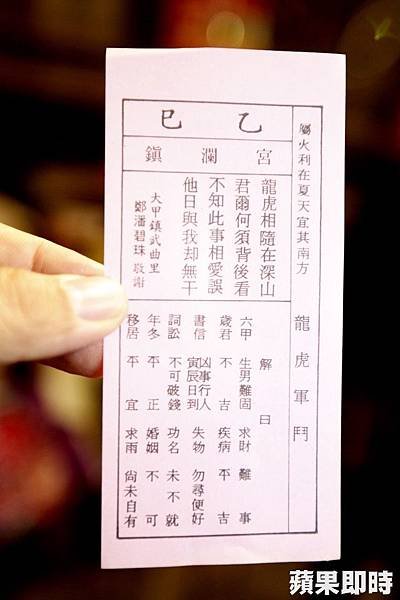 乙巳
鎮瀾宮
屬火利在夏天宜其南方 龍虎軍鬥
龍虎相隨在深山
君爾何須背後看
不知此事相愛誤
他日與我却無干
大甲鎮武曲里
鄭潘碧珠 敬謝
解曰
六甲 生男難固 求財 難事
歲君 不吉 疾病 平吉
書信 凶事行人 寅辰日到 失物 勿尋便好
詞訟 不可破錢 功名 未不就
年冬 平正 婚姻 不可
移居 平宜 求雨 尚未自有
蘋果即時